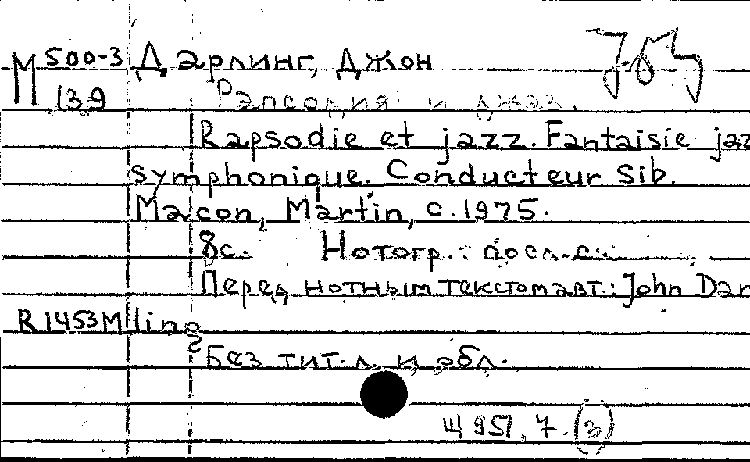 М 500-3 Дарлинг, Джон
139 Рапсодия и джаз.
Rapsodie et jazz. Fantaisie jaz
symphonique. Conducteur Sib.
Macon, Martin, c.1975.
8с. Нотогр.:
Перед нотным текстом авт.: John Dar
R1453M ling
Без тит.л. и обл.
Щ 951.7.(3)